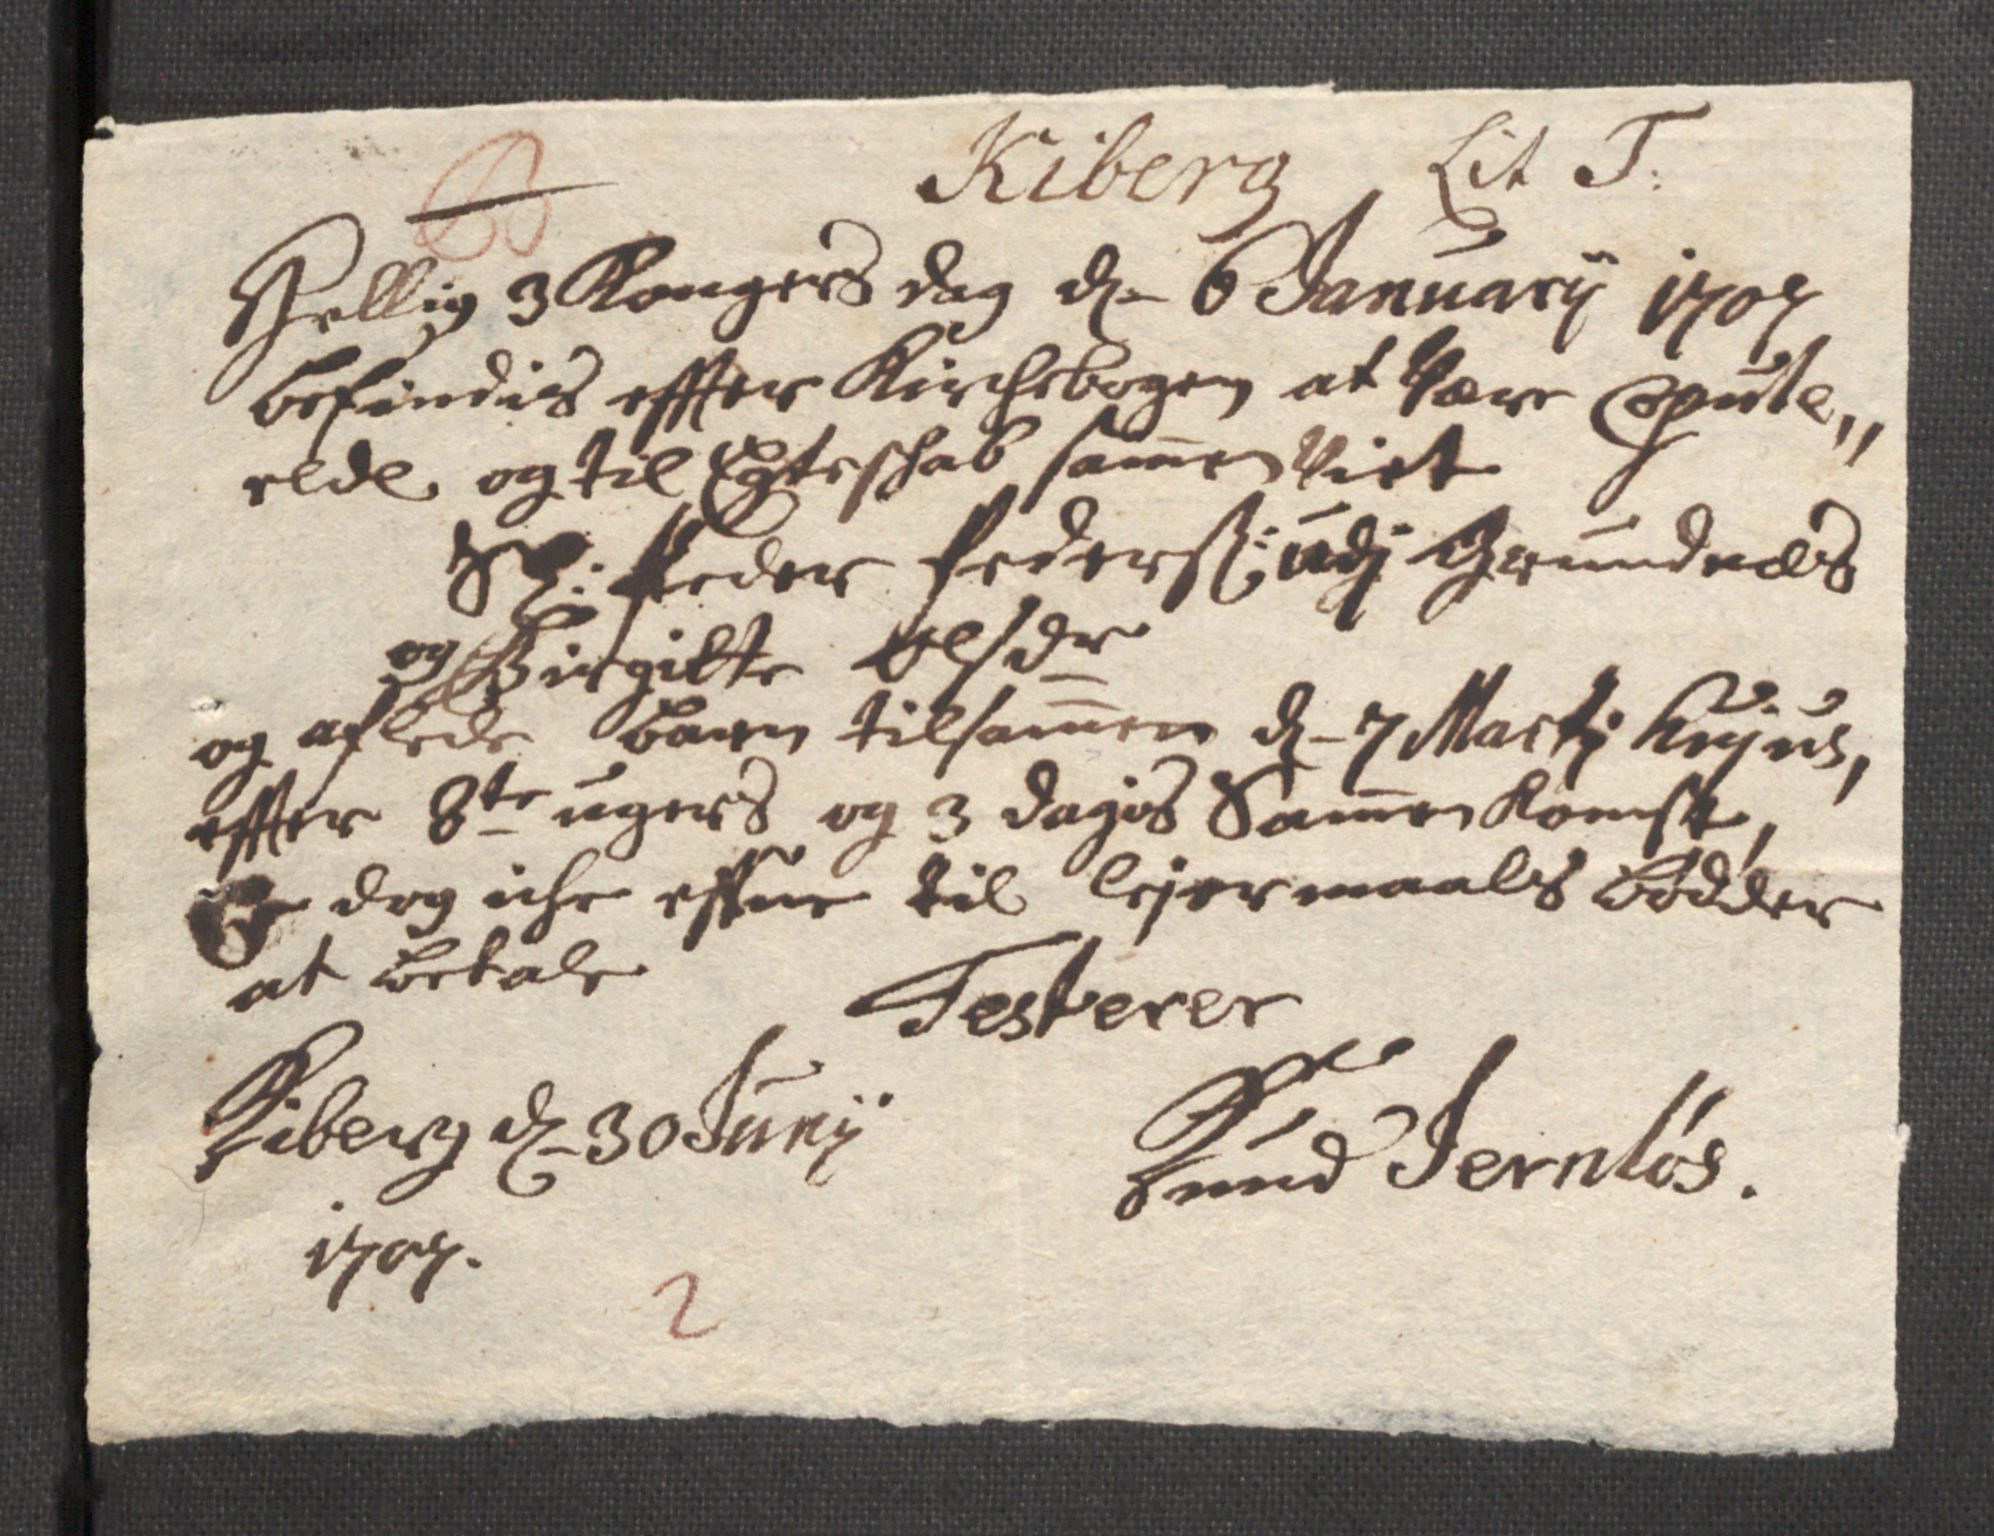 Kiberg Lit T.
Hellig 3 Kongers dag d. 6 Januarij 1707
befindis effter Kirchebogen at være Copule,,
rede og til Egteschab sammenviet
Sr: Peder Pederß: udj Grundnæs
og Birgitte Olsdr
og aflede barn tilsammen d. 7 Martij hujus,
effter 8te ugers og 3 dagis Sammenkomst,
Er dog iche effne til lejermaals bødder
at betale
Testerer
Kiberg d. 30 Junij
Knud Jernløs.
1707.
2